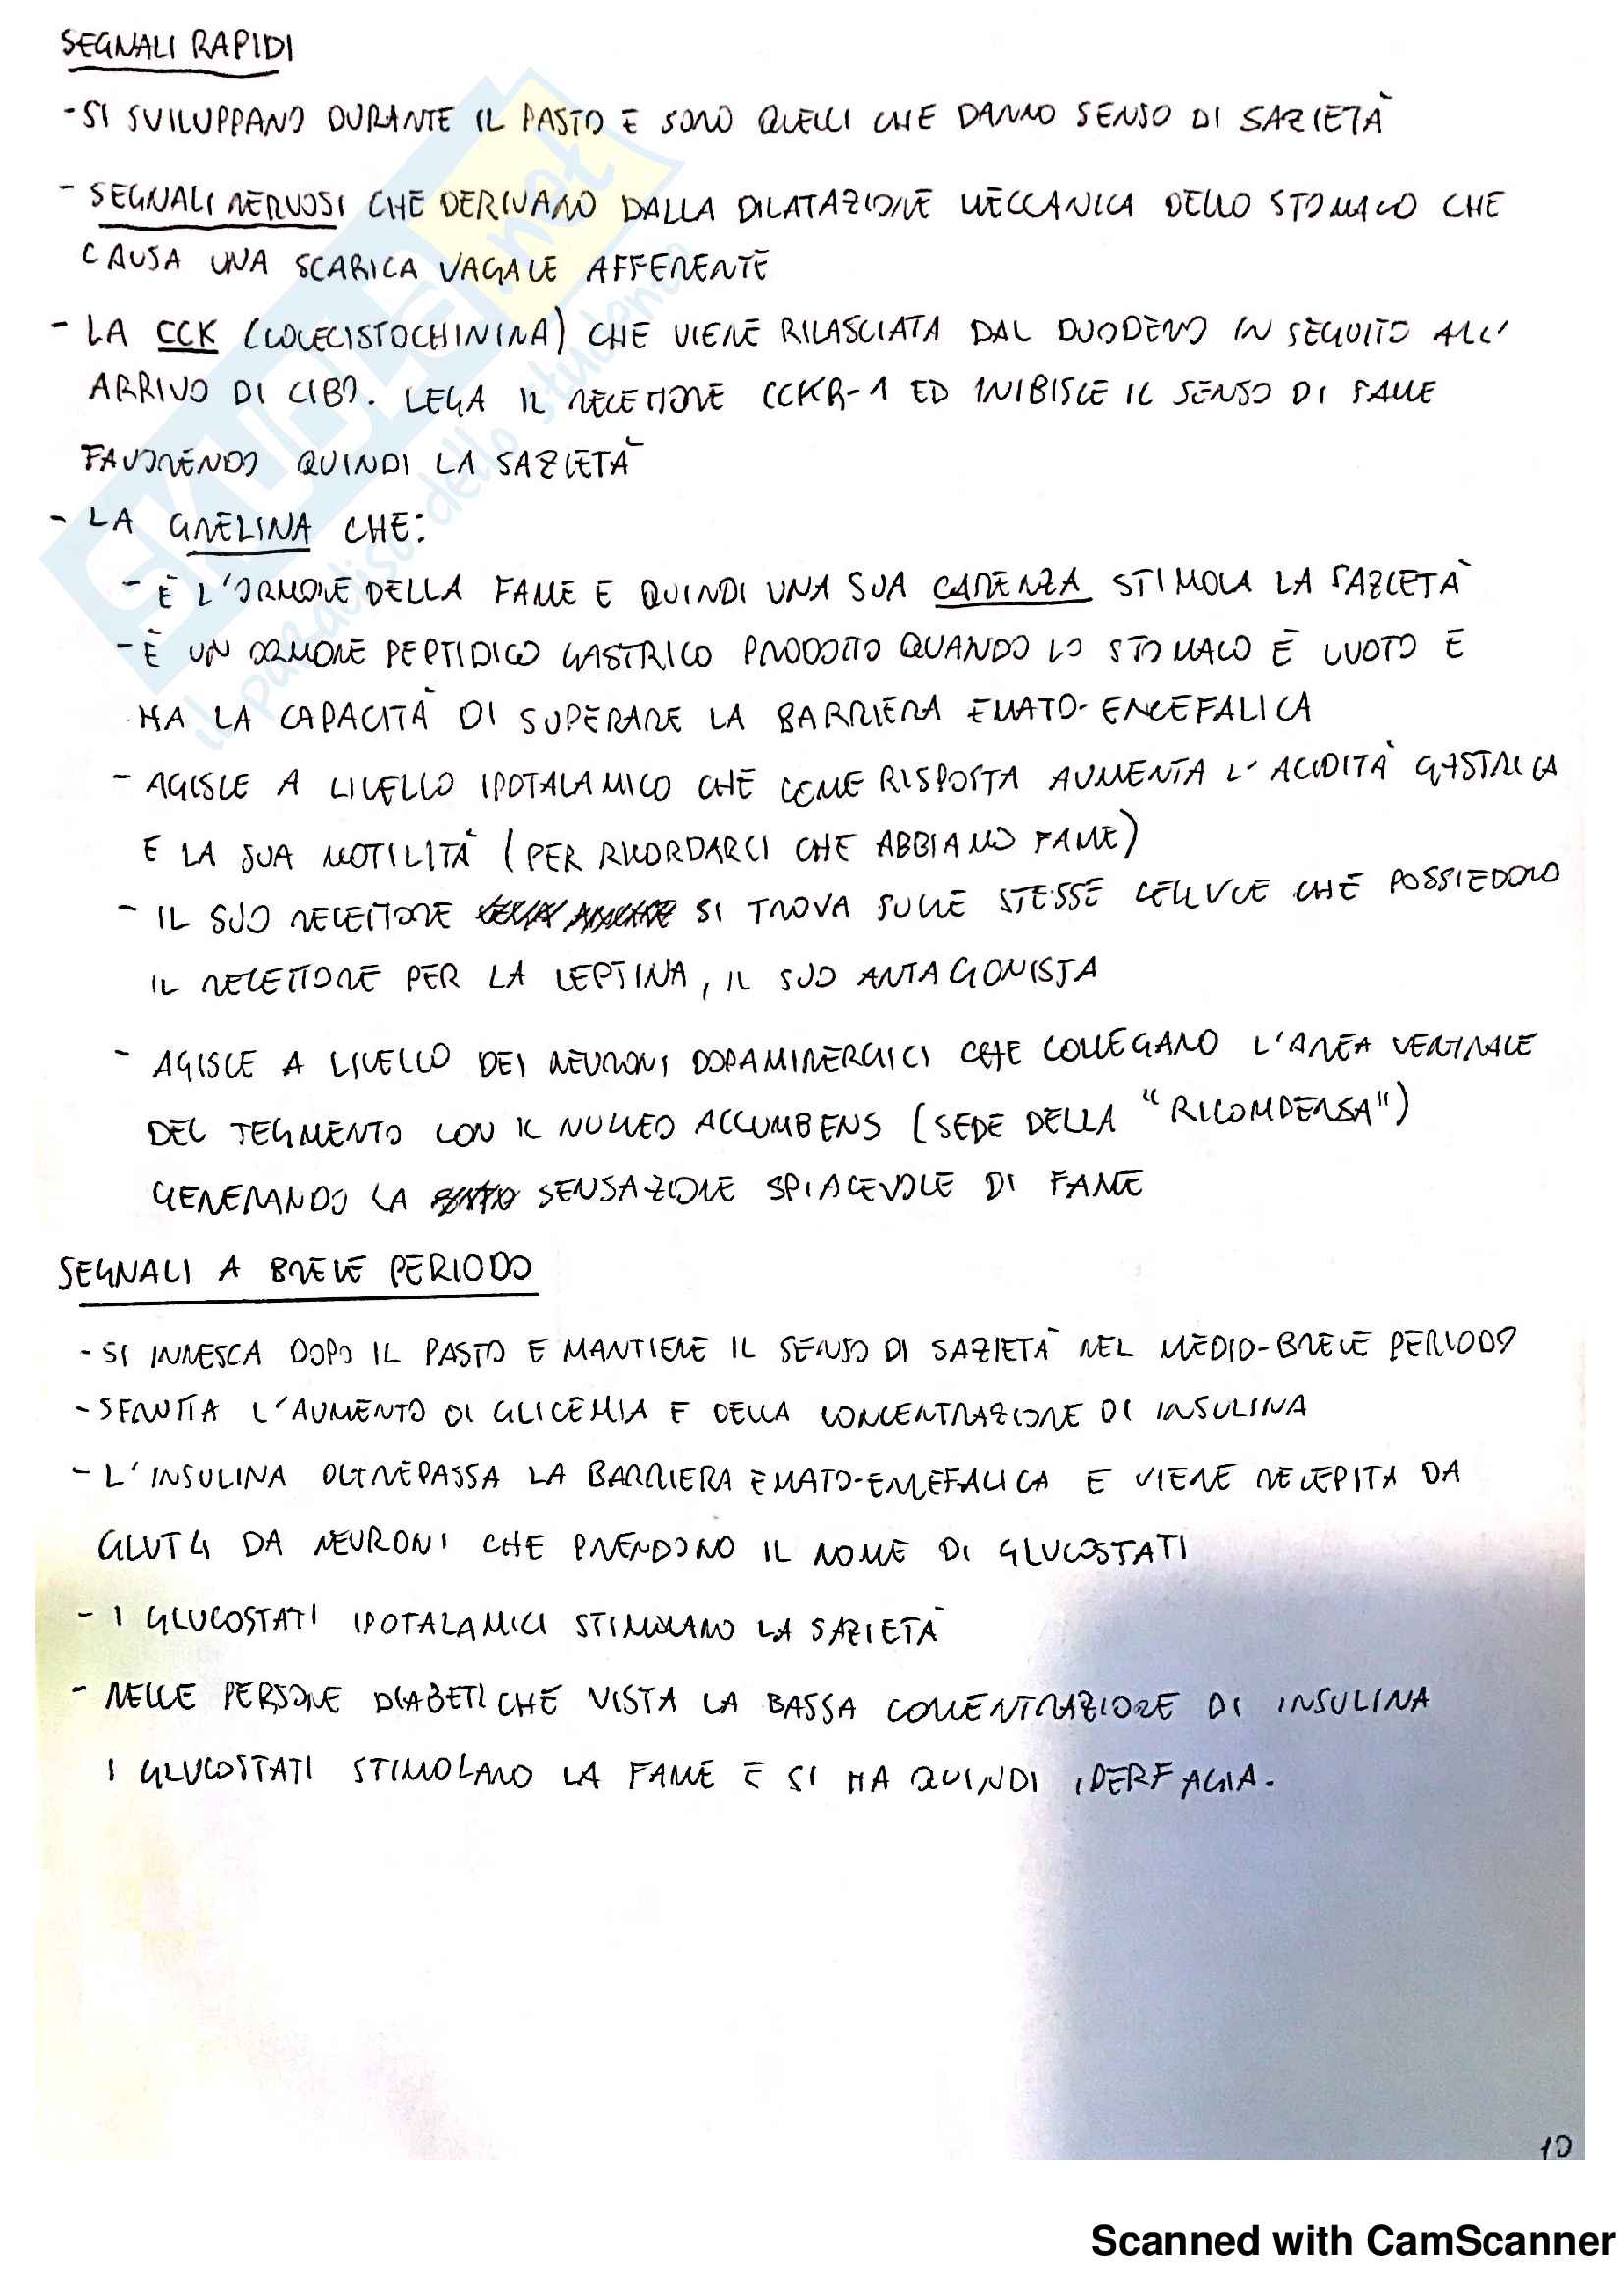 SEGNALI RAPIDI
- SI SVILUPPANO DURANTE IL PASTO E SONO QUELLI CHE DANNO SENSO DI SAZIETÀ
- SEGNALI NERVOSI CHE DERIVANO DALLA DILATAZIONE MECCANICA DELLO STOMACO CHE
CAUSA UNA SCARICA VAGALE AFFERENTE
- LA CCK (COLECISTOCHININA) CHE VIENE RILASCIATA DAL DUODENO IN SEGUITO ALL'
ARRIVO DI CIBO. LEGA IL RECETTORE CCKR-1 ED INIBISCE IL SENSO DI FAME
FAVORENDO QUINDI LA SAZIETÀ
- LA GRELINA CHE:
- È L'ORMONE DELLA FAME E QUINDI UNA SUA CARENZA STIMOLA LA SAZIETÀ
- È UN ORMONE PEPTIDICO GASTRICO PRODOTTO QUANDO LO STOMACO È VUOTO E
HA LA CAPACITÀ DI SUPERARE LA BARRIERA EMATO-ENCEFALICA
- AGISCE A LIVELLO IPOTALAMICO CHE COME RISPOSTA AUMENTA L'ACIDITÀ GASTRICA
E LA SUA MOTILITÀ (PER RICORDARCI CHE ABBIAMO FAME)
- IL SUO RECETTORE SI TROVA SULLE STESSE CELLULE CHE POSSIEDONO
IL RECETTORE PER LA LEPTINA, IL SUO ANTAGONISTA
- AGISCE A LIVELLO DEI NEURONI DOPAMINERGICI CHE COLLEGANO L'AREA VENTRALE
DEL TEGMENTO CON IL NUCLEO ACCUMBENS (SEDE DELLA "RICOMPENSA")
GENERANDO LA SENSAZIONE SPIACEVOLE DI FAME
SEGNALI A BREVE PERIODO
- SI INNESCA DOPO IL PASTO E MANTIENE IL SENSO DI SAZIETÀ NEL MEDIO-BREVE PERIODO
- SFRUTTA L'AUMENTO DI GLICEMIA E DELLA CONCENTRAZIONE DI INSULINA
- L'INSULINA OLTREPASSA LA BARRIERA EMATO-ENCEFALICA E VIENE RECEPITA DA
GLUT4 DA NEURONI CHE PRENDONO IL NOME DI GLUCOSTATI
- I GLUCOSTATI IPOTALAMICI STIMOLANO LA SAZIETÀ
- NELLE PERSONE DIABETICHE VISTA LA BASSA CONCENTRAZIONE DI INSULINA
I GLUCOSTATI STIMOLANO LA FAME E SI HA QUINDI IPERFAGIA.
10
Scanned with CamScanner
SKUOLA.net
il paradiso dello studente